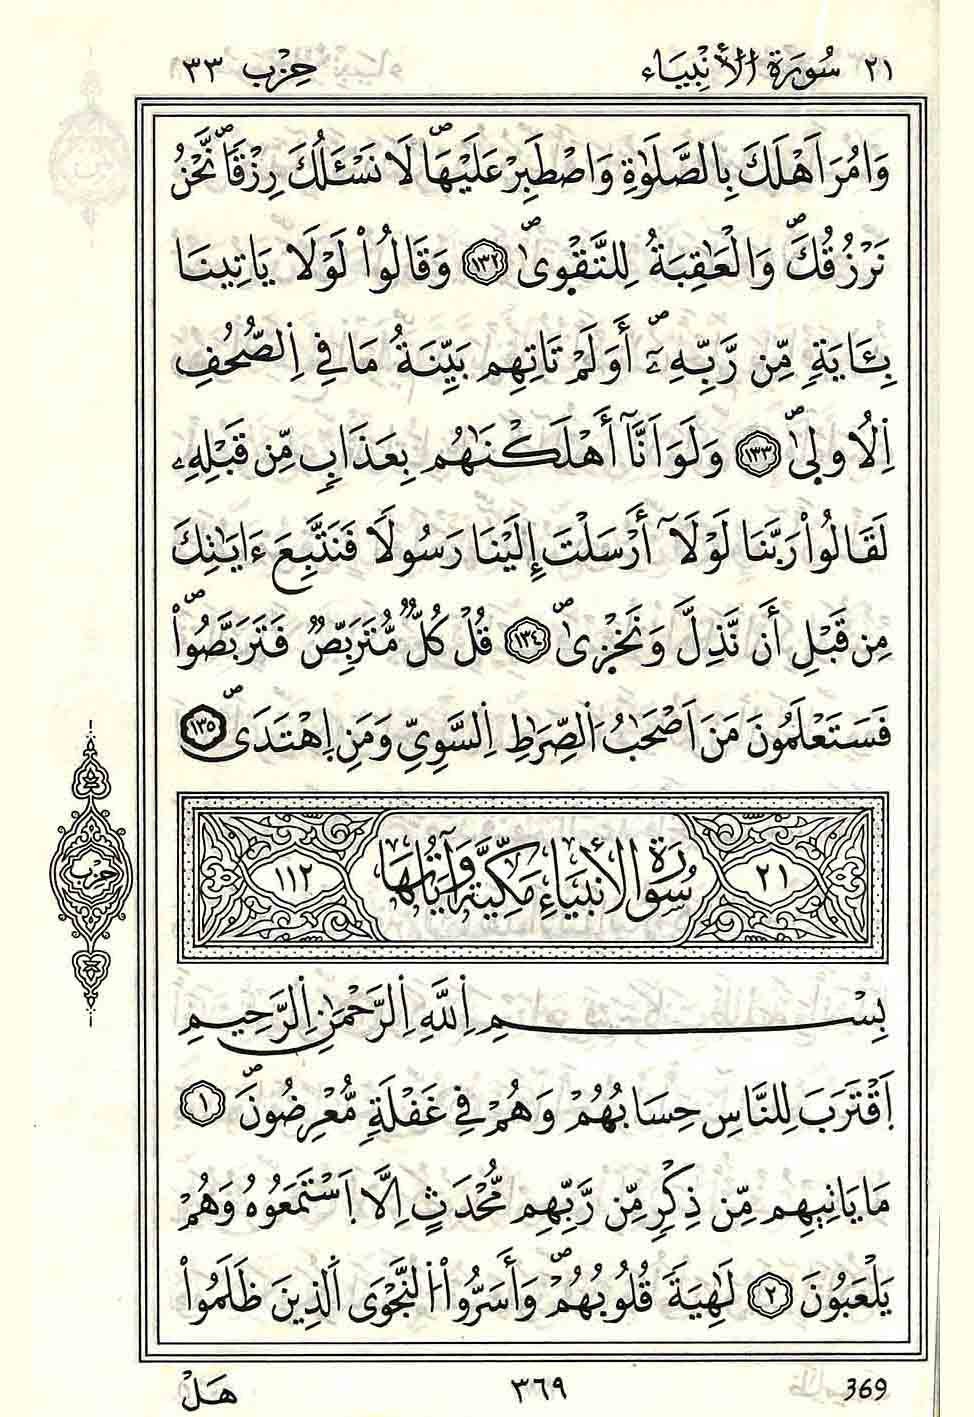 ٢١ سُورَةُ الْأَنْبِيَاء حِزْب ٣٣
وَامُرَ اَهْلَكَ بِالصَّلَوٰةِ وَاصْطَبِرْ عَلَيْهَاۖ لَا نَسْـَٔلُكَ رِزْقاٗۖ نَّحْنُ
نَرْزُقُكَۖ وَالْعَٰقِبَةُ لِلتَّقْو۪ىٰۖ ١٣٢ وَقَالُواْ لَوْلَا يَاتِينَا
بِـَٔايَةٖ مِّن رَّبِّهِۦٓۖ أَوَلَمْ تَاتِهِم بَيِّنَةُ مَا فِي اِ۬لصُّحُفِ
اِ۬لُاول۪ىٰۖ ١٣٣ وَلَوَ اَنَّآ أَهْلَكْنَٰهُم بِعَذَابٖ مِّن قَبْلِهِۦ
لَقَالُواْ رَبَّنَا لَوْلَآ أَرْسَلْتَ إِلَيْنَا رَسُولاٗ فَنَتَّبِعَ ءَايَٰتِكَ
مِن قَبْلِ أَن نَّذِلَّ وَنَخْز۪ىٰۖ ١٣٤ قُلْ كُلّٞ مُّتَرَبِّصٞ فَتَرَبَّصُواْۖ
فَسَتَعْلَمُونَ مَنَ اَصْحَٰبُ اُ۬لصِّرَٰطِ اِ۬لسَّوِيِّ وَمَنِ اِ۪هْتَد۪ىٰۖ ١٣٥
٢١ سُورَةُ الْأَنْبِيَاءِ مَكِّيَّةٌ وَآيَاتُهَا ١١٢
حزب
بِسْمِ اِ۬للَّهِ اِ۬لرَّحْمَٰنِ اِ۬لرَّحِيمِ
اِ۪قْتَرَبَ لِلنَّاسِ حِسَابُهُمْ وَهُمْ فِي غَفْلَةٖ مُّعْرِضُونَۖ ١
مَا يَاتِيهِم مِّن ذِكْرٖ مِّن رَّبِّهِم مُّحْدَثٍ اِلَّا اَ۪سْتَمَعُوهُ وَهُمْ
يَلْعَبُونَ ٢ لَٰهِيَةٗ قُلُوبُهُمْۖ وَأَسَرُّواْ اُ۬لنَّجْوَى اَ۬لذِينَ ظَلَمُواْ
هَلْ ٣٦٩ 369